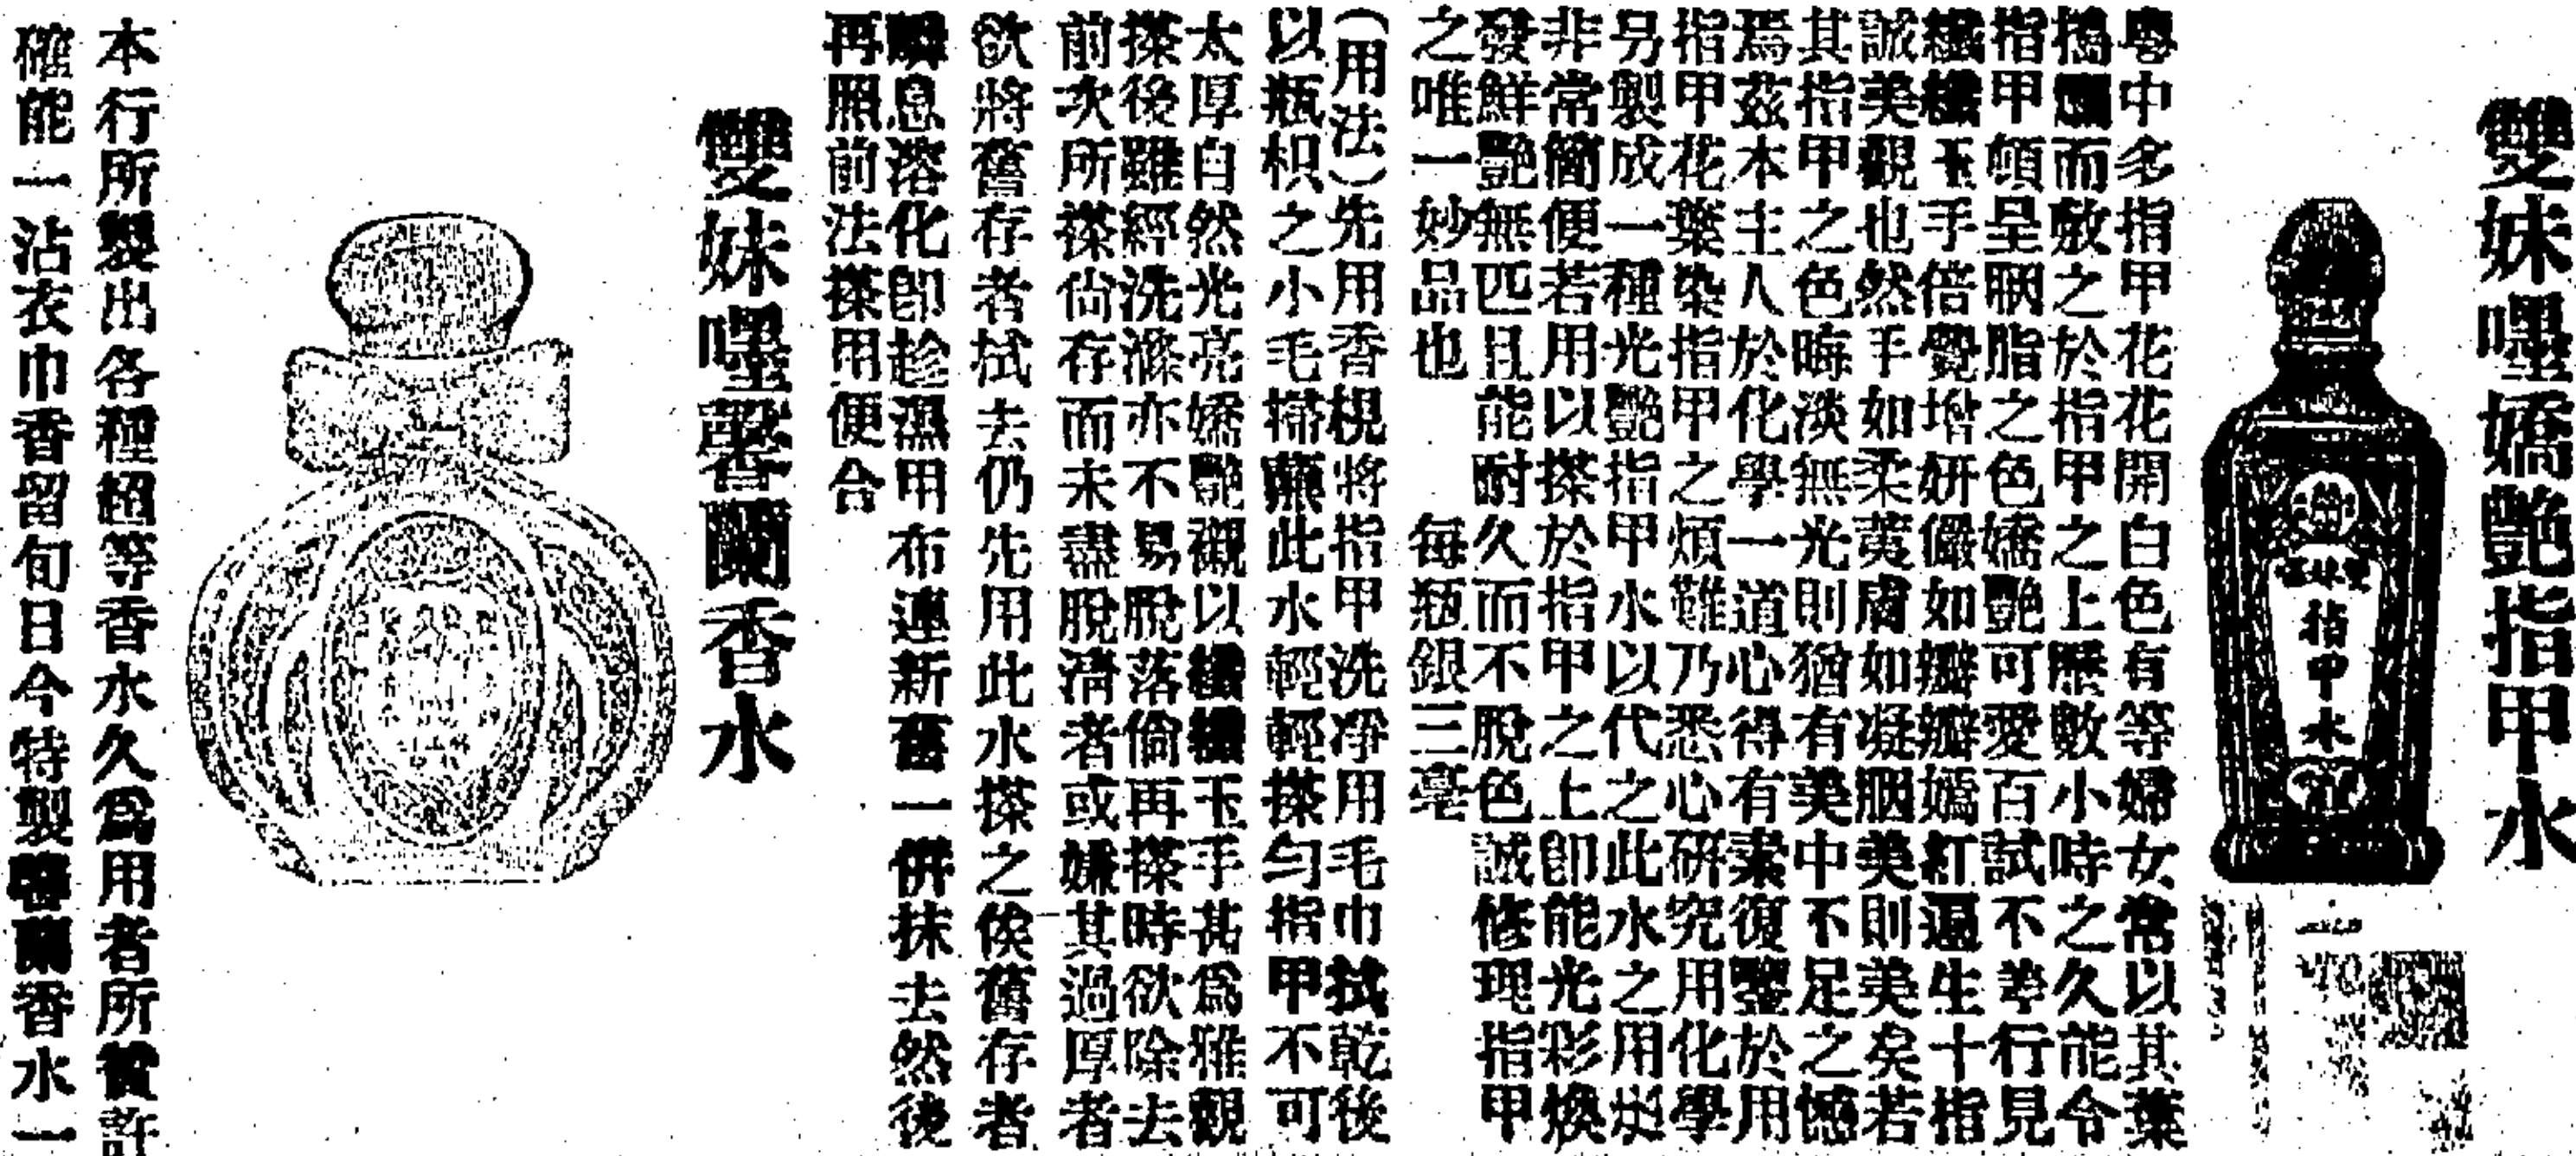 雙妹嘜嬌艷指甲水
雙妹嘜
指甲水
粵中多指甲花花開白色有等婦女常以其葉
搗爛而敷之於指甲之上歷數小時之久能令
指甲頓呈胭脂之色嬌艷可愛百試不爽行見
纖纖玉手倍覺增妍儼如瓣瓣嬌紅遍生十指
誠美觀也然手如柔荑膚如凝胭美則美矣若
其指甲之色晦淡無光則猶有美中不足之憾
焉茲本主人於化學一道心得有素復鑒於用
指甲花葉染指甲之煩難乃悉心研究用化學
另製成一種光艷指甲水以代之此水之用
非常簡便若用以搽於指甲之上即能光彩煥
發鮮艷無匹且能耐久而不脫色誠修理指甲
之唯一妙品也 每瓶銀三毫
(用法)先用香梘將指甲洗凈用毛巾拭乾後
以瓶枳之小毛掃蘸此水輕輕搽勻指甲不可
太厚自然光亮嬌艷襯以纖纖玉手甚為雅觀
搽後雖經洗滌亦不易脫落倘再搽時欲除去
前次所搽尙存而未盡脫淸者或嫌其過厚者
欲將舊存者拭去仍先用此水搽之俟舊存者
瞬息溶化卽趁濕用布連新舊一併抹去然後
再照前法搽用便合
雙妹嘜馨蘭香水
本行所製出各種超等香水久爲用者所贊許
確能一沾衣巾香留旬日今特製馨蘭香水一